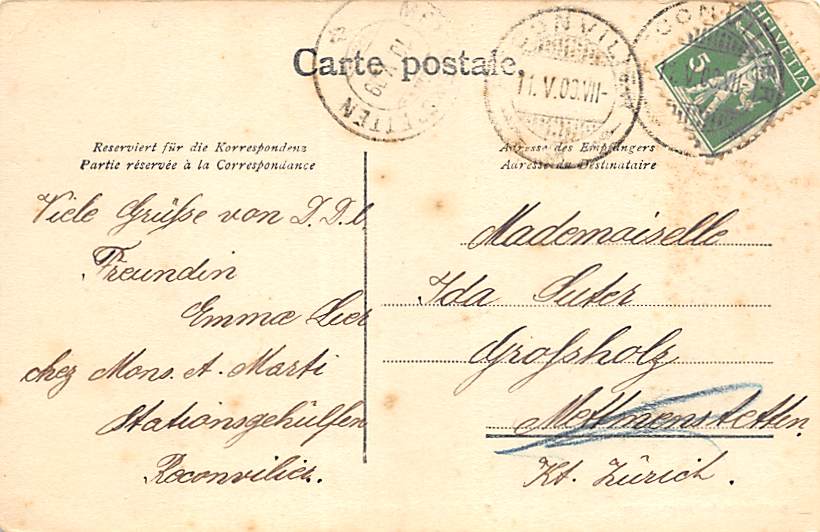 Carte postale.
CONVIL
11.V.09.VII-
HELVETIA
5
Reserviert für die Korrespondenz
Partie réservée à la Correspondance
Adresse des Empfängers
Adresse du Destinataire
Viele Grüsse von D. D. l.
Freundin
Emma Lier
chez Mons. A. Marti
Stationsgehülfen
Reconvilier.
Mademoiselle
Ida Suter
Grossholz
Mettmenstetten.
Kt. Zürich.